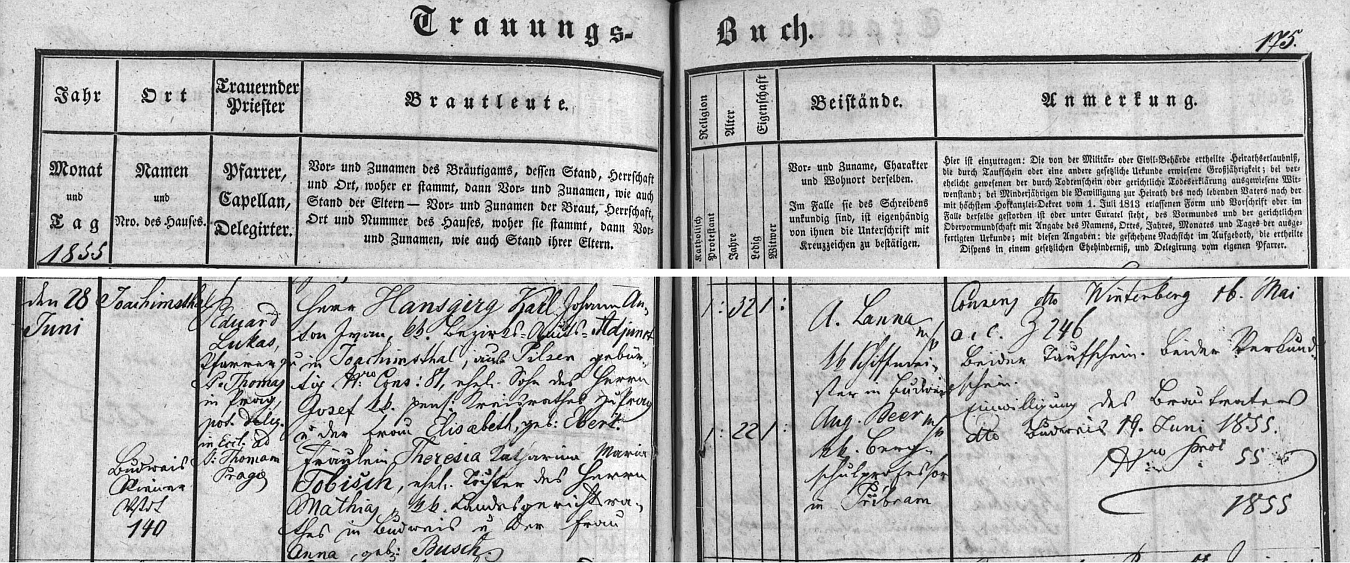 Trauungs-
Buch.
175.
Jahr
Ort
Trauernder
Priester
Brautleute.
Religion
Alter
Eigenschaft
Beistände.
Anmerkung.
Monat
und
Tag
1855
Namen
und
Nro. des Hauses.
Pfarrer,
Capellan,
Delegirter.
Vor- und Zunamen des Bräutigams, dessen Stand, Herrschaft
und Ort, woher er stammt, dann Vor- und Zunamen, wie auch
Stand der Eltern — Vor- und Zunamen der Braut, Herrschaft,
Ort und Nummer des Hauses, woher sie stammt, dann Vor-
und Zunamen, wie auch Stand ihrer Eltern.
Katholisch
Protestant
Jahre
Ledig
Witwer
Vor- und Zuname, Charakter
und Wohnort derselben.
Im Falle sie des Schreibens
unkundig sind, ist eigenhändig
von ihnen die Unterschrift mit
Kreuzzeichen zu bestätigen.
Hier ist einzutragen: Die von der Militär- oder Civil-Behörde ertheilte Heirathserlaubniß,
die durch Taufschein oder eine andere gesetzliche Urkunde erwiesene Großjährigkeit; bei ver-
ehelicht gewesenen der durch Todtenschein oder gerichtliche Todeserklärung ausgewiesene Wit-
wenstand; bei Minderjährigen die Bewilligung zur Heirath des noch lebenden Vaters nach der
mit höchstem Hofkanzlei-Dekret vom 1. Juli 1813 erlassenen Form und Vorschrift oder im
Falle derselbe gestorben ist oder unter Curatel steht, des Vormundes und der gerichtlichen
Obervormundschaft mit Angabe des Namens, Ortes, Jahres, Monates und Tages der ausge-
fertigten Urkunde; mit diesen Angaben: die geschehene Nachsicht im Aufgeboth, die ertheilte
Dispens in einem gesetzlichen Ehehinderniß, und Delegirung vom eigenen Pfarrer.
den 28
Juni
Joachimsthal
Budweis
Wiener
Vrst
140
Eduard
Lukas,
Pfarrer zu
St. Thomas
in Prag,
deleg.
in Eccl. ad
S. Thomam
Pragæ
Herr Hansgirg Karl Johann An-
ton Ivan, kk. Bezirks-Amts-Adjunct
in Joachimsthal, aus Pilsen gebür-
tig Nro Cons: 81, ehel. Sohn des Herrn
Josef kk. pens. Kreisrathes zu Prag
u der Frau Elisabeth, geb: Ebert.
Fräulein Theresia Katharina Maria
Tobisch, ehel. Tochter des Herrn
Mathias, kk. Landesgerichtsra-
thes in Budweis u der Frau
Anna geb: Busch
1: 32 1:
1: 22 1:
A. Lanna m/p
kk Schiffmei-
ster in Budweis
Aug. Beer m/p
kk. Berg-
schulprofessor
in Přibram
Consens dto Winterberg 16. Mai
a. c. Z 746
Beider Taufschein. Beider Verkünd-
schein.
Einwilligung des Brautvaters
dto Budweis 19. Juni 1855.
55
1855